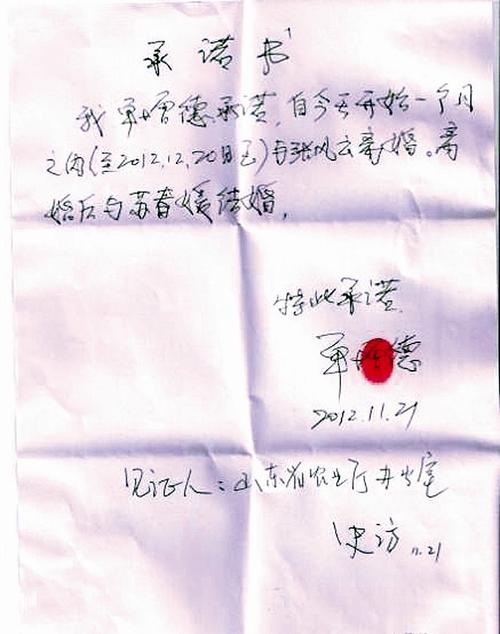 承诺书
我单增德承诺,自今天开始一个月
之内(至2012.12.20日止)与张凤云离婚。离
婚后与苏春媛结婚,
特此承诺.
单增德
2012.11.21
见证人:山东省农业厅办公室
史访 11.21